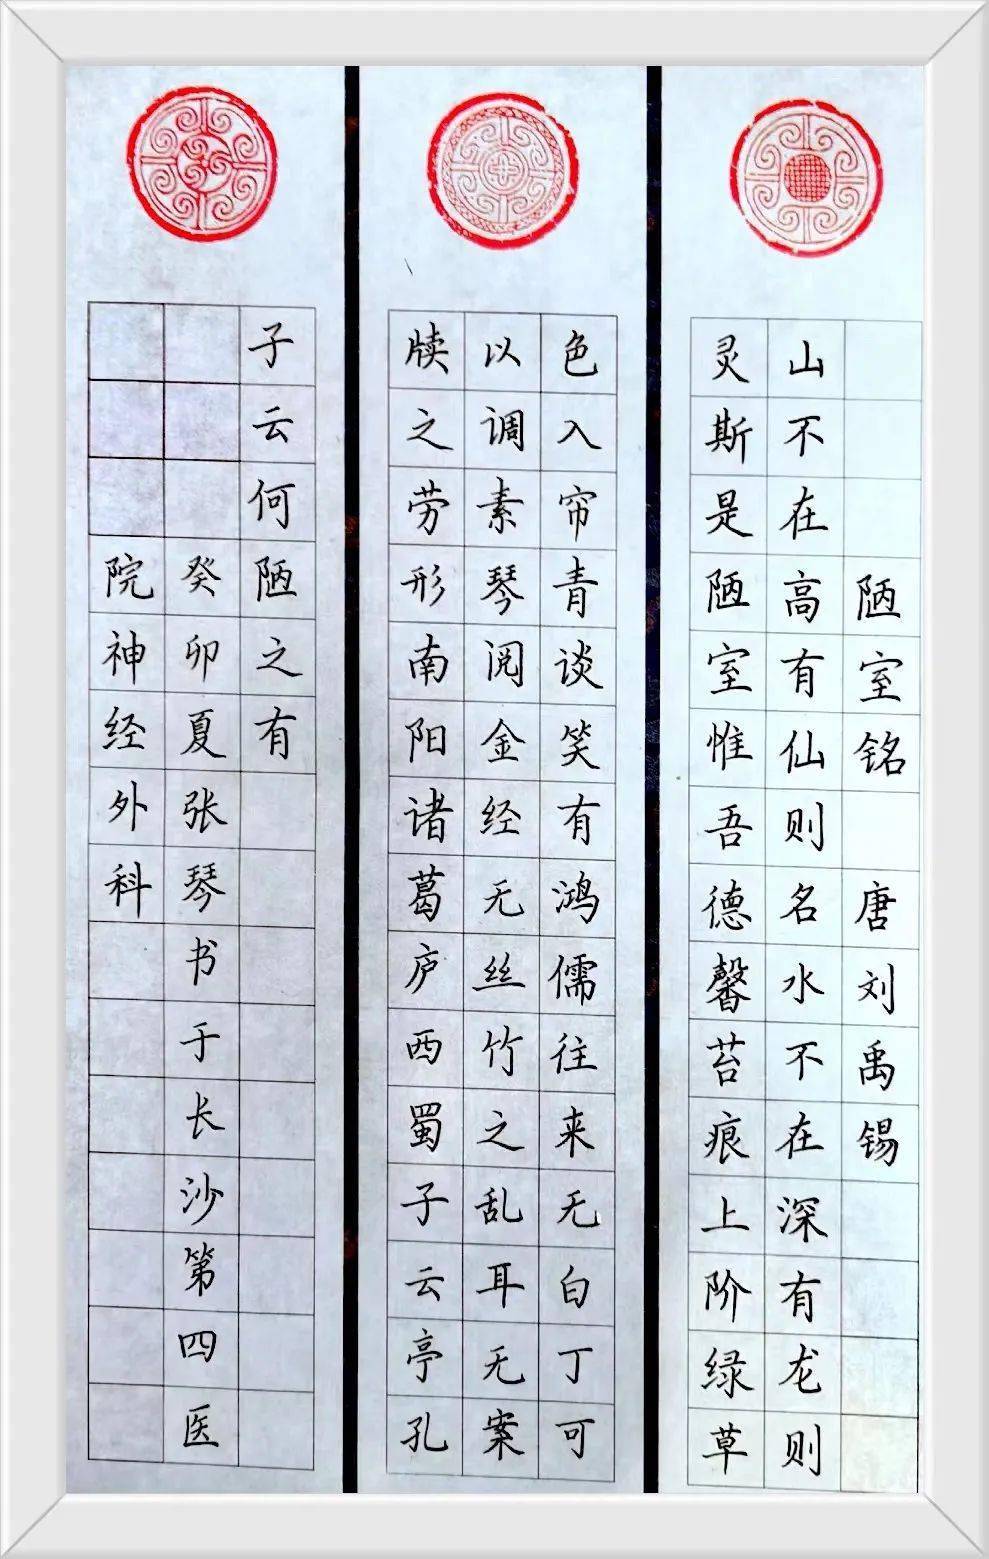 陋室铭 唐刘禹锡
山不在高有仙则名水不在深有龙则
灵斯是陋室惟吾德馨苔痕上阶绿草
色入帘青谈笑有鸿儒往来无白丁可
以调素琴阅金经无丝竹之乱耳无案
牍之劳形南阳诸葛庐西蜀子云亭孔
子云何陋之有
癸卯夏张琴书于长沙第四医
院神经外科